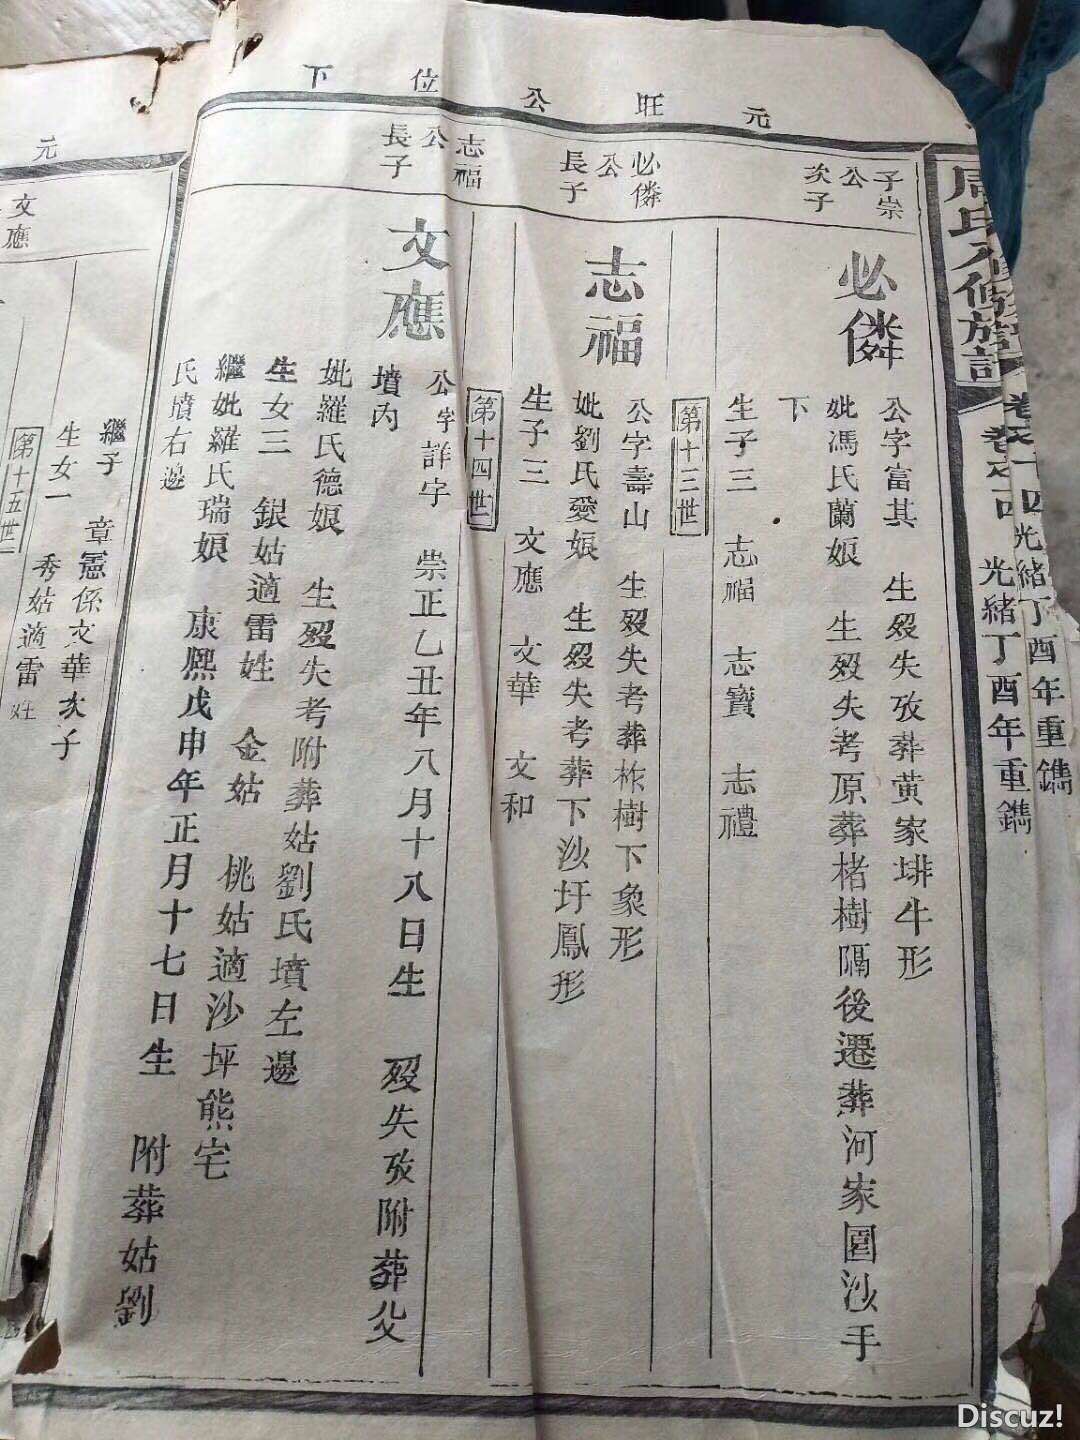 元旺公位下
周氏八修族譜
卷之十四
光緒丁酉年重鐫
光緒丁酉年重鐫
子崇
公
次子
必僯
公字富其 生殁失攷葬黄家垹牛形
妣馮氏蘭娘 生殁失考原葬楮樹隔後遷葬河家圍沙手
下
生子三 志福 志寶 志禮
第十三世
必僯
公
長子
志福
公字壽山 生殁失考葬柞樹下象形
妣劉氏愛娘 生殁失考葬下沙圩鳳形
生子三 文應 文華 文和
第十四世
志福
公
長子
文應
公字詳字 崇正乙丑年八月十八日生 殁失攷附葬父
墳內
妣羅氏德娘 生殁失考附葬姑劉氏墳左邊
生女三 銀姑適雷姓 金姑 桃姑適沙坪熊宅
繼妣羅氏瑞娘 康熙戊申年正月十七日生 附葬姑劉
氏墳右邊
元
文應
繼子 章憲係文華次子
生女一 秀姑適雷姓
第十五世
Discuz!